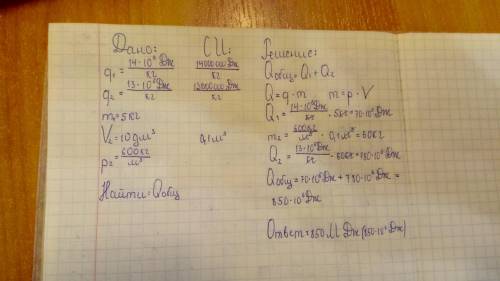 Дано:
q₁ = 14·10⁶ Дж/кг
q₂ = 13·10⁶ Дж/кг
m₁ = 5 кг
V₂ = 10 дм³
p₂ = 600 кг/м³
Найти = Qобщ
СИ:
14000000 Дж/кг
13000000 Дж/кг
0,1 м³
Решение:
Qобщ = Q₁ + Q₂
Q = q · m m = p · V
Q₁ = 14·10⁶ Дж/кг · 5кг = 70·10⁶ Дж
m₂ = 600кг/м³ · 0,1 м³ = 60кг
Q₂ = 13·10⁶ Дж/кг · 60кг = 780·10⁶ Дж
Qобщ = 70·10⁶ Дж + 780·10⁶ Дж =
850·10⁶ Дж
Ответ = 850 М Дж (850·10⁶ Дж)